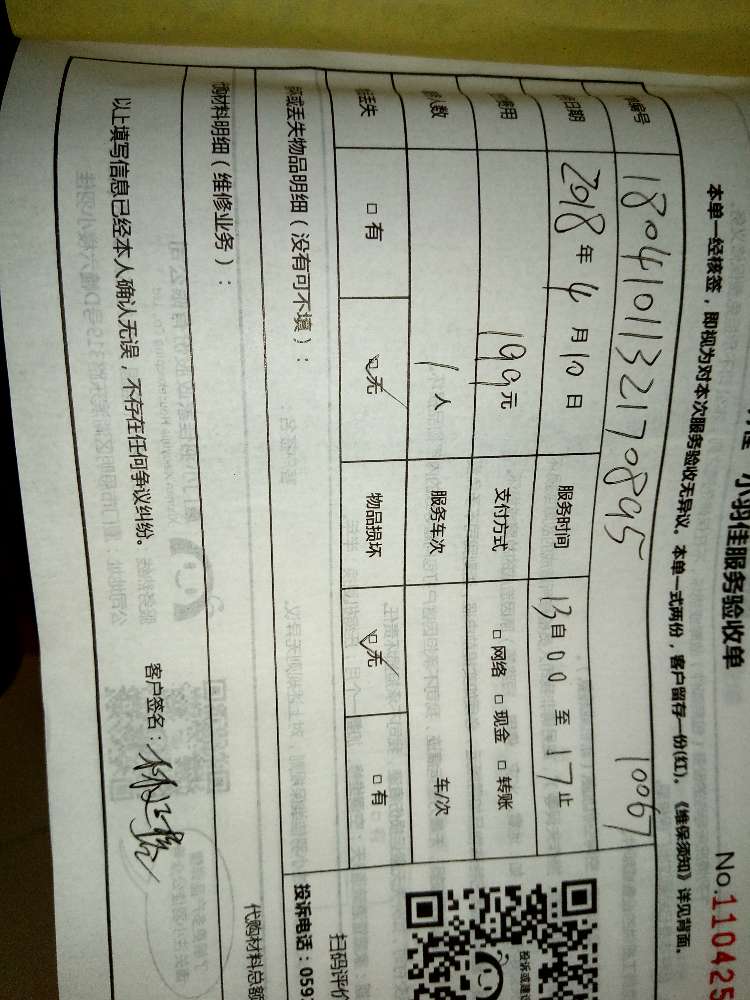 小羽佳服务验收单
No.110425
本单一经核签，即视为对本次服务验收无异议。本单一式两份，客户留存一份(红)。《维保须知》详见背面。
编号 1804101132170895 10067
日期 2018年4月10日 服务时间 13自00至17止
费用 199元 支付方式 □网络 □现金 □转账
人数 1人 服务车次 车/次
丢失 □有 ☑无 物品损坏 ☑无 □有
或丢失物品明细（没有可不填）：
材料明细（维修业务）：
以上填写信息已经本人确认无误，不存在任何争议纠纷。
客户签名：
投诉或建议
扫码评价
投诉电话：059
代购材料总额